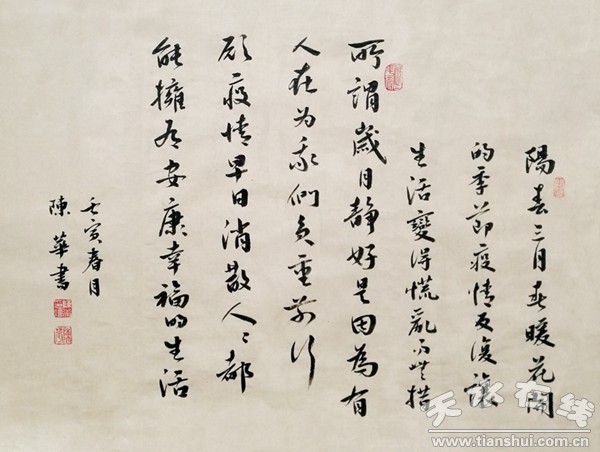 陽春三月春暖花開
的季節疫情反復讓
生活變得慌亂而無措
所謂歲月静好是因為有
人在为我們負重前行
願疫情早日消散人々都
能擁有安康幸福的生活
壬寅春月
陳華書
天水在线
www.tianshui.com.cn